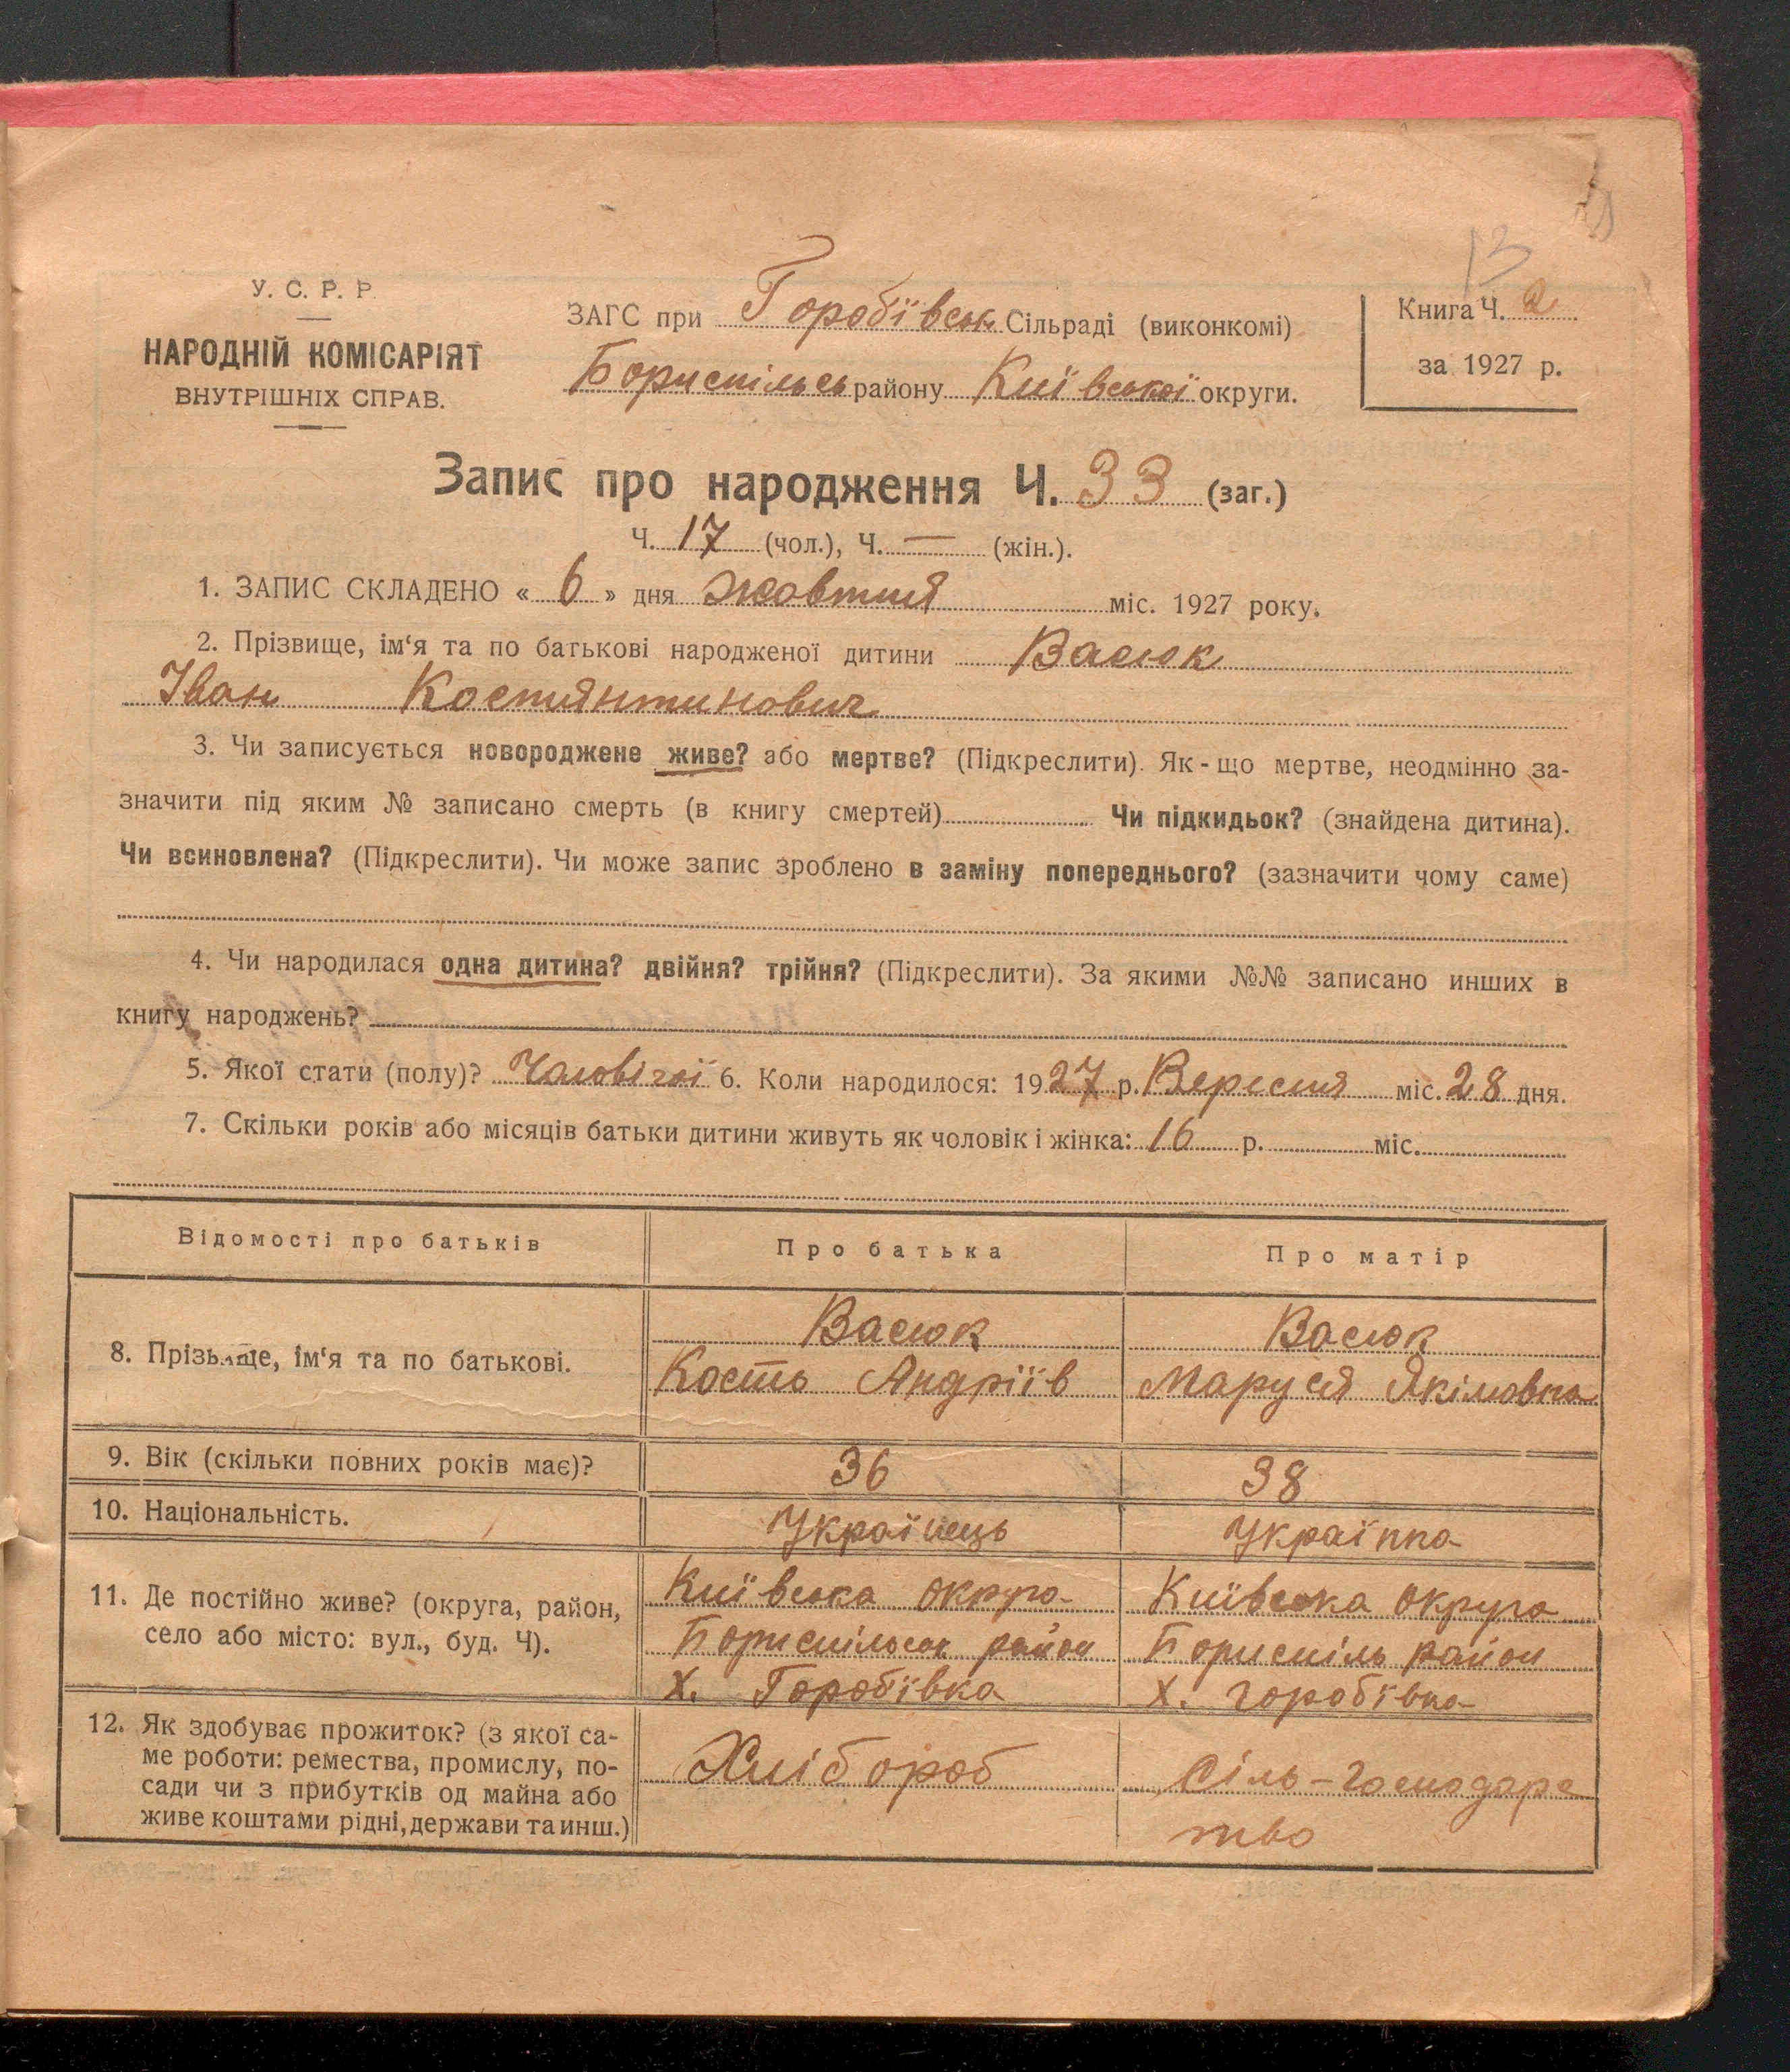 13
У. С. Р. Р.
НАРОДНІЙ КОМІСАРІЯТ
ВНУТРІШНІХ СПРАВ.
ЗАГС при Горобївськ Сільраді (виконкомі)
Бориспільсь району Київської округи.
Книга Ч. 2
за 1927 р.
Запис про народження Ч. 33 (заг.)
Ч. 17 (чол.), Ч. — (жін.).
1. ЗАПИС СКЛАДЕНО « 6 » дня жовтня міс. 1927 року.
2. Прізвище, ім‘я та по батькові народженої дитини Васюк
Іван Костянтинович
3. Чи записується новороджене живе? або мертве? (Підкреслити). Як-що мертве, неодмінно за-
значити під яким № записано смерть (в книгу смертей) Чи підкидьок? (знайдена дитина).
Чи всиновлена? (Підкреслити). Чи може запис зроблено в заміну попереднього? (зазначити чому саме)
4. Чи народилася одна дитина? двійня? трійня? (Підкреслити). За якими №№ записано инших в
книгу народжень?
5. Якої стати (полу)? Чоловічої 6. Коли народилося: 1927 р. Вересня міс. 28 дня.
7. Скільки років або місяців батьки дитини живуть як чоловік і жінка: 16 р. міс.
Відомості про батьків Про батька Про матір
8. Прізвище, ім‘я та по батькові.
Васюк Васюк
Кость Андріїв Маруся Якімовна
9. Вік (скільки повних років має)? 36 38
10. Національність. Українець Українка
11. Де постійно живе? (округа, район,
село або місто: вул., буд. Ч).
Київська округа Київська округа
Бориспільськ район Бориспіль район
х. Горобївка х. Горобївка
12. Як здобуває прожиток? (з якої са-
ме роботи: ремества, промислу, по-
сади чи з прибутків од майна або
живе коштами рідні, держави та инш.)
Хлібороб Сіль-господарс
тво